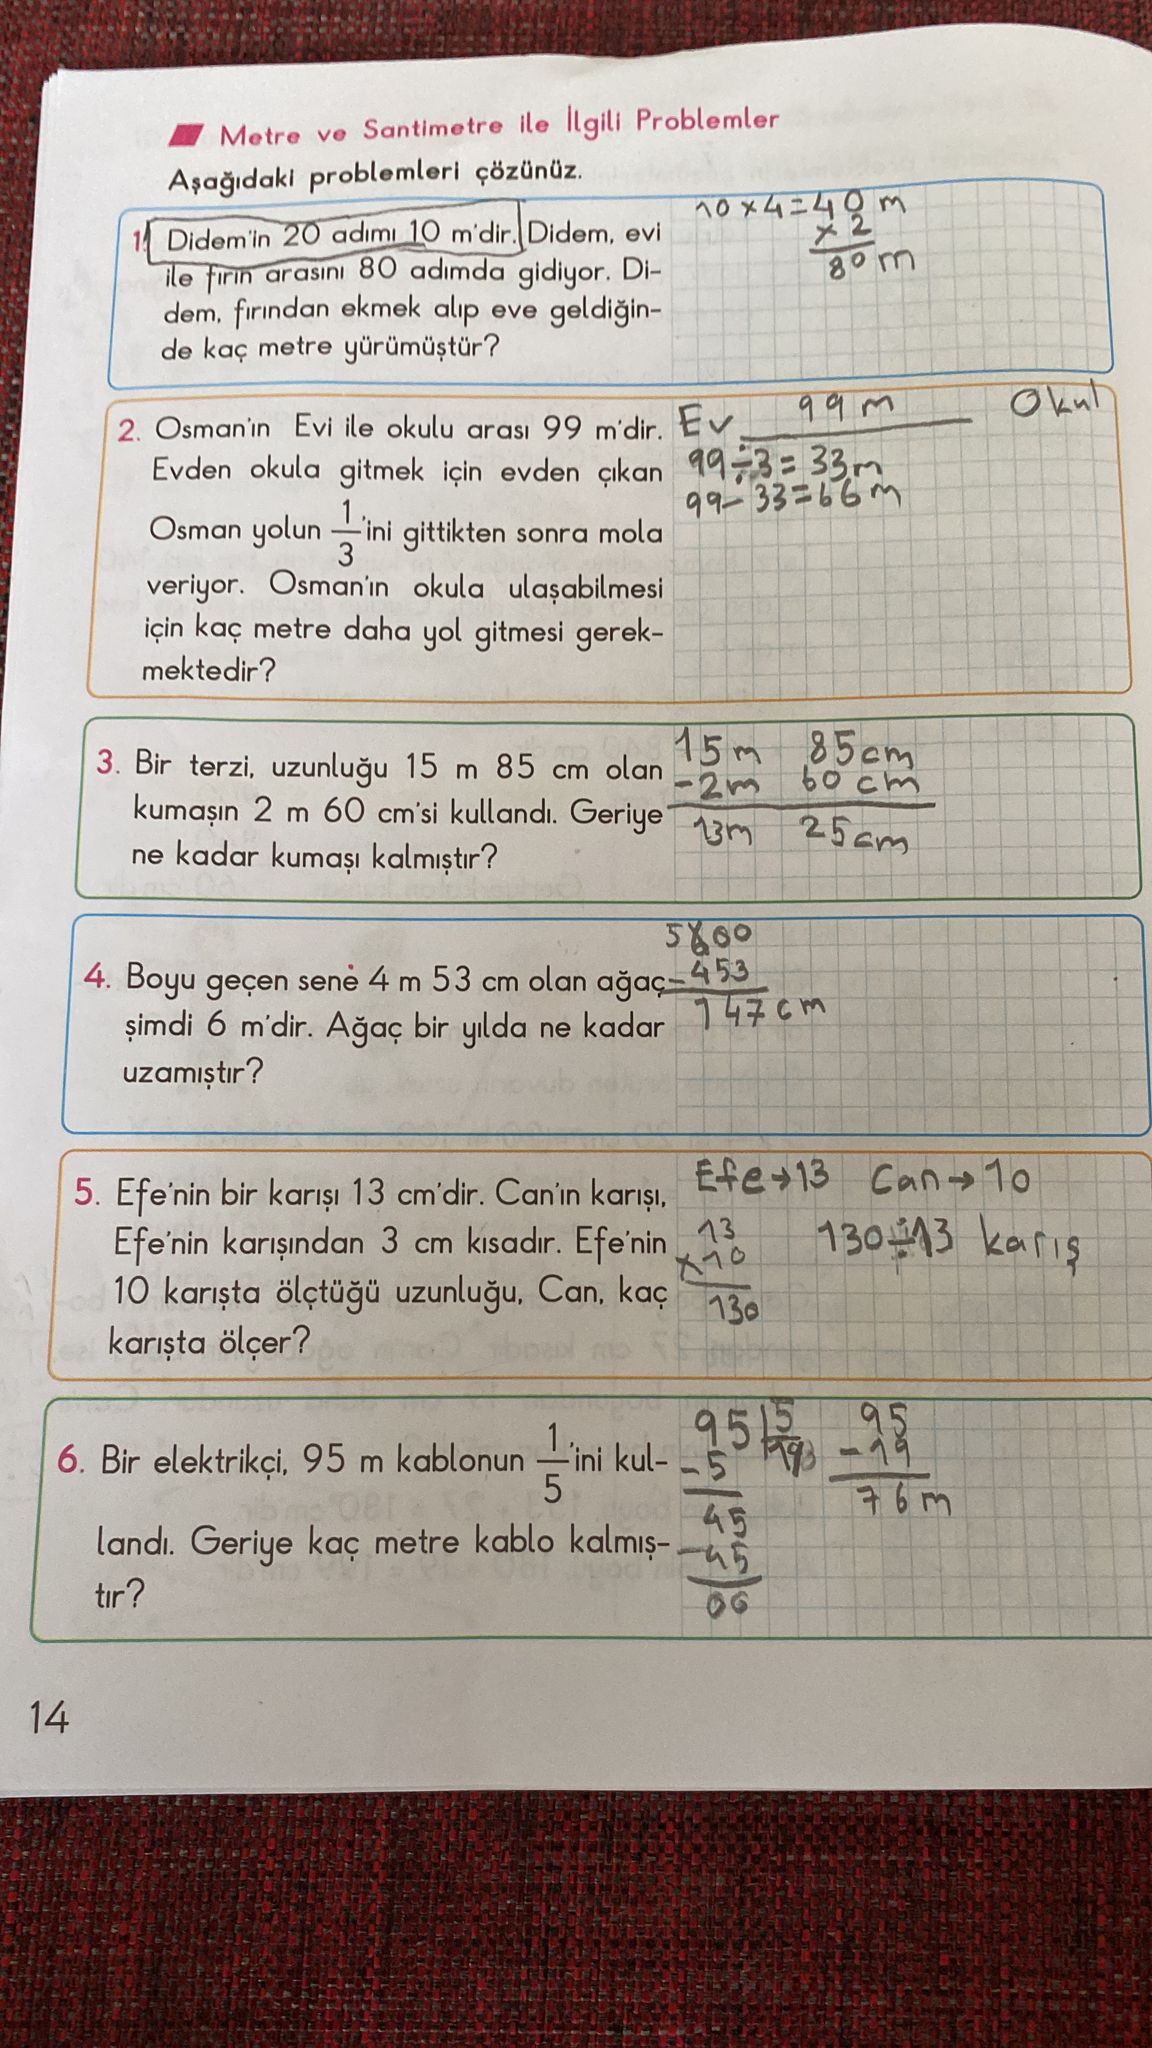 Metre ve Santimetre ile İlgili Problemler
Aşağıdaki problemleri çözünüz.
1. Didem'in 20 adımı 10 m'dir. Didem, evi
ile fırın arasını 80 adımda gidiyor. Di-
dem, fırından ekmek alıp eve geldiğin-
de kaç metre yürümüştür?
10 x 4 = 40 m
x 2
80 m
2. Osman'ın Evi ile okulu arası 99 m'dir.
Evden okula gitmek için evden çıkan
Osman yolun 1/3'ini gittikten sonra mola
veriyor. Osman'ın okula ulaşabilmesi
için kaç metre daha yol gitmesi gerek-
mektedir?
Ev 99 m Okul
99 ÷ 3 = 33 m
99 - 33 = 66 m
3. Bir terzi, uzunluğu 15 m 85 cm olan
kumaşın 2 m 60 cm'si kullandı. Geriye
ne kadar kumaşı kalmıştır?
15 m 85 cm
- 2 m 60 cm
13 m 25 cm
4. Boyu geçen sene 4 m 53 cm olan ağaç
şimdi 6 m'dir. Ağaç bir yılda ne kadar
uzamıştır?
5 600
- 453
147 cm
5. Efe'nin bir karışı 13 cm'dir. Can'ın karışı,
Efe'nin karışından 3 cm kısadır. Efe'nin
10 karışta ölçtüğü uzunluğu, Can, kaç
karışta ölçer?
Efe → 13 Can → 10
13
x 10
130
130 ÷ 13 karış
6. Bir elektrikçi, 95 m kablonun 1/5'ini kul-
landı. Geriye kaç metre kablo kalmış-
tır?
95 | 5
- 5 19
45
- 45
00
95
- 19
76 m
14